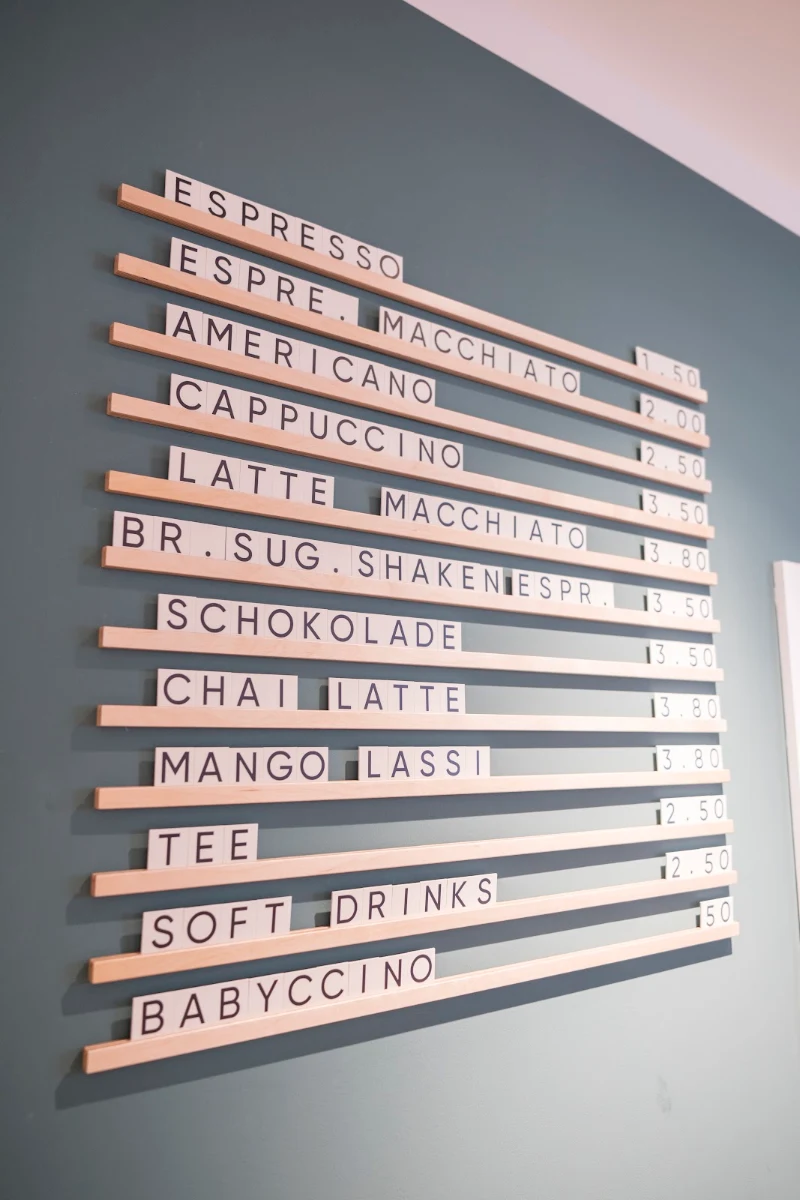 ESPRESSO 1.50
ESPRE. MACCHIATO 2.00
AMERICANO 2.50
CAPPUCCINO 3.50
LATTE MACCHIATO 3.80
BR.SUG.SHAKEN ESPR. 3.50
SCHOKOLADE 3.50
CHAI LATTE 3.80
MANGO LASSI 3.80
TEE 2.50
SOFT DRINKS 2.50
BABYCCINO 50